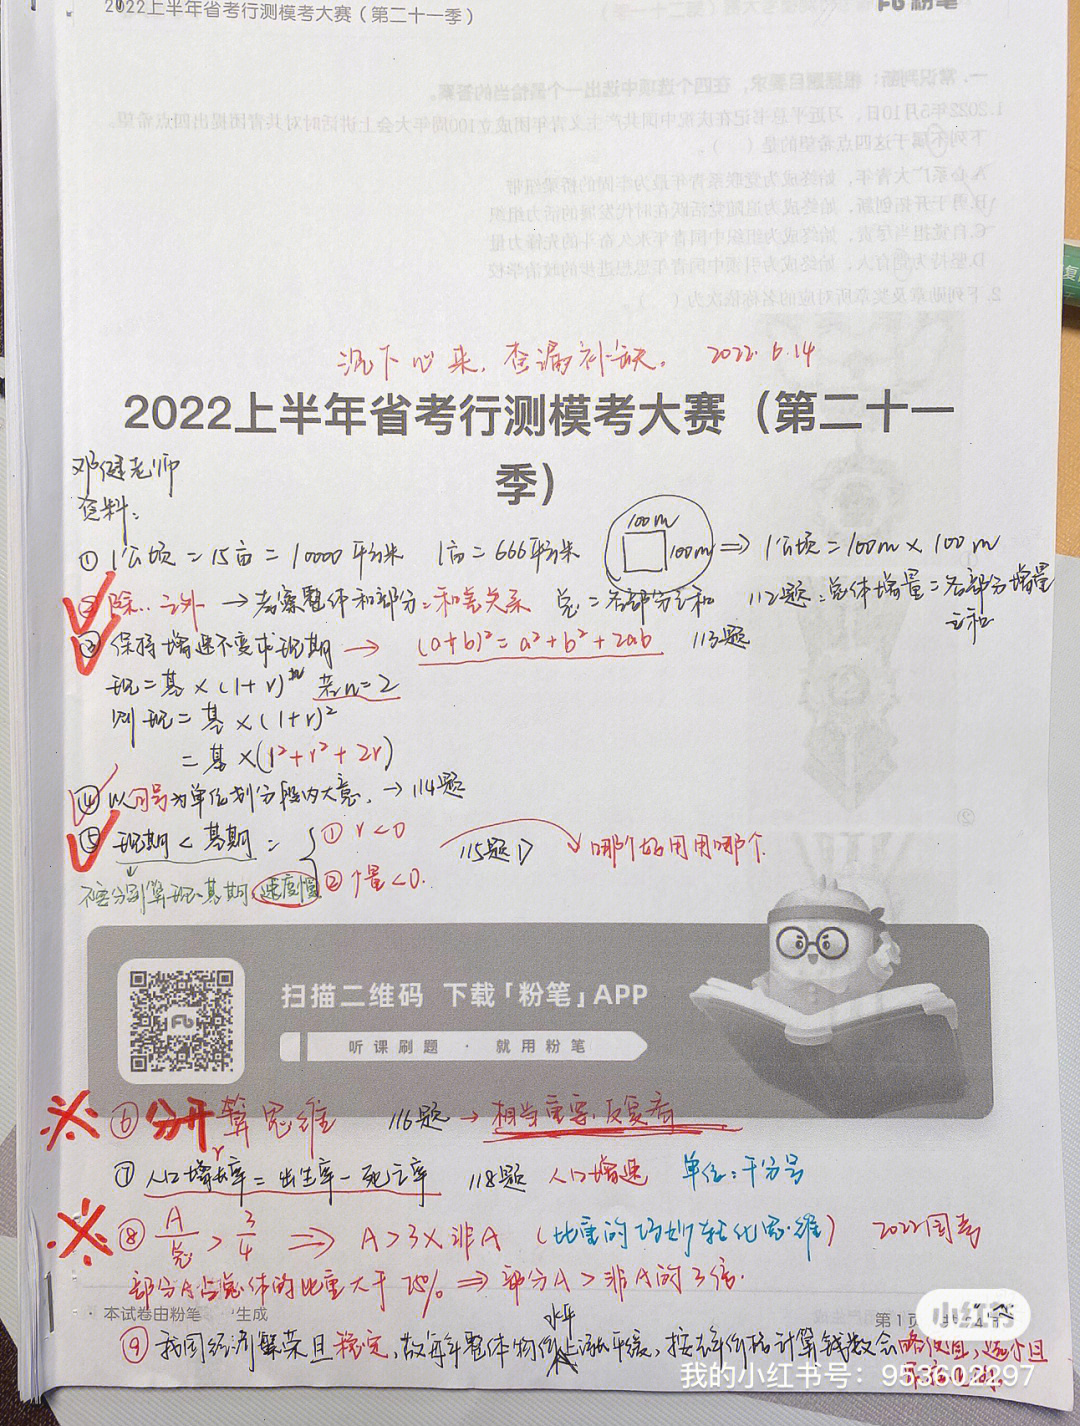 2022上半年省考行测模考大赛（第二十一季）
粉笔
沉下心来，查漏补缺。 2022.6.14
2022上半年省考行测模考大赛（第二十一
季）
邓健老师
资料：
① 1公顷＝15亩＝10000平方米 1亩＝666平方米 100m 100m ⇒ 1公顷＝100m×100m
② 除…之外 → 考察整体和部分：和差关系 总＝各部分之和 112题：总体增量＝各部分增量
之和
③ 保持增速不变求现期 → (a+b)²＝a²+b²+2ab 113题
现＝基×(1+r)ⁿ 若n＝2
则现＝基×(1+r)²
＝基×(1²+r²+2r)
④ 以句号为单位划分段内大意，→ 114题
⑤ 现期＜基期： ① r＜0 115题D 哪个好用用哪个.
不要分别算现、基期，速度慢 ② 增量＜0.
扫描二维码 下载「粉笔」APP
听课刷题 · 就用粉笔
⑥ 分开算思维 116题 → 相当重要，反复看
⑦ 人口增长率＝出生率－死亡率 118题 人口增速 单位：千分号
⑧ A/总 ＞ 3/4 ⇒ A＞3×非A （比重的巧妙转化思维） 2022国考
部分A占总体的比重大于75% ⇒ 部分A＞非A的3倍.
本试卷由粉笔 生成 第1页
小红书
⑨ 我国经济繁荣且稳定，故每年整体物价水平上涨平缓，按去年价格计算钱数会略便宜，
我的小红书号：953602297